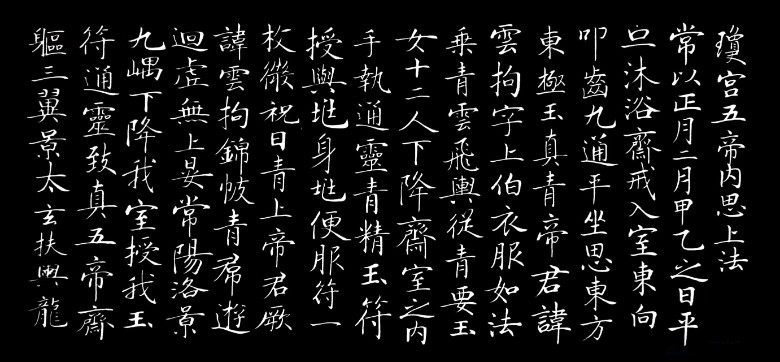 瓊宫五帝内思上法
常以正月二月甲乙之日平
旦沐浴齋戒入室東向
叩齒九通平坐思東方
東極玉真青帝君諱
雲拘字上伯衣服如法
乗青雲飛輿従青要玉
女十二人下降齋室之内
手執通靈青精玉符
授與地身地便服符一
枚微祝曰青上帝君厥
諱雲拘錦帔青帬遊
迴虚無上晏常陽洛景
九嵎下降我室授我玉
符通靈致真五帝齋
軀三翼景太玄扶輿龍